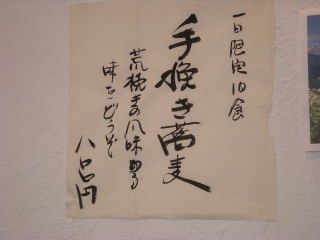 一日限定10食
手挽き蕎麦
荒挽きの風味ある
味をどうぞ
八〇〇円